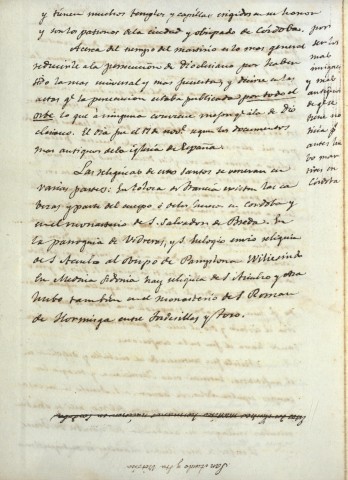 y tienen muchos templos y capillas erigidos a su honor
y son los patronos de la ciudad y obispado de Cordoba.
Acerca del tiempo del martirio es lo mas general
reducirle a la persecucion de diocleciano por haber
sido la mas universal y mas sangrienta, y decirse en las
actas q.e la persecucion estaba publicada por todo el
orbe lo que a ninguna conviene mejor q.e a la de dio
cleciano. El dia fue el 17 de nov.e segun los documentos
mas antiguos de la iglesia de España.
Las reliquias de estos santos se veneran en
varias partes: En tolosa de francia existen las ca
bezas y parte del cuerpo, o de los huesos en cordoba y
en el monasterio de S. Salvador de Breda. En
la parroquia de Vidreras, y S. Eulogio envio reliquia
de S. Acisclo al Obispo de Pamplona Wiliesindo
En Medina Sidonia hay reliquia de S. Acisclo y otra
hubo tambien en el monasterio de S. Roman
de Hormisga entre Tordesillas y Toro.
por
ser los
mas
insignes
y mas
antiguos
de q.e se
tiene no
ticia q.e
antes hu
bo mar
tires en
Cordoba